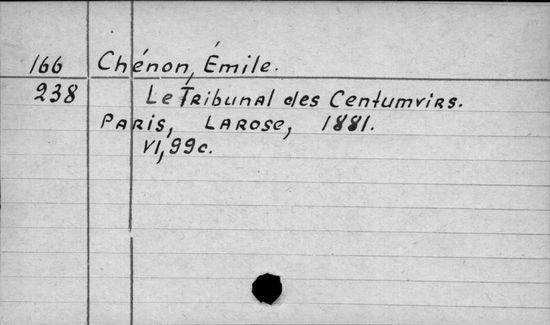 166 Chénon, Émile.
238 Le Tribunal des Centumvirs.
Paris, Larose, 1881.
VI, 99 c.